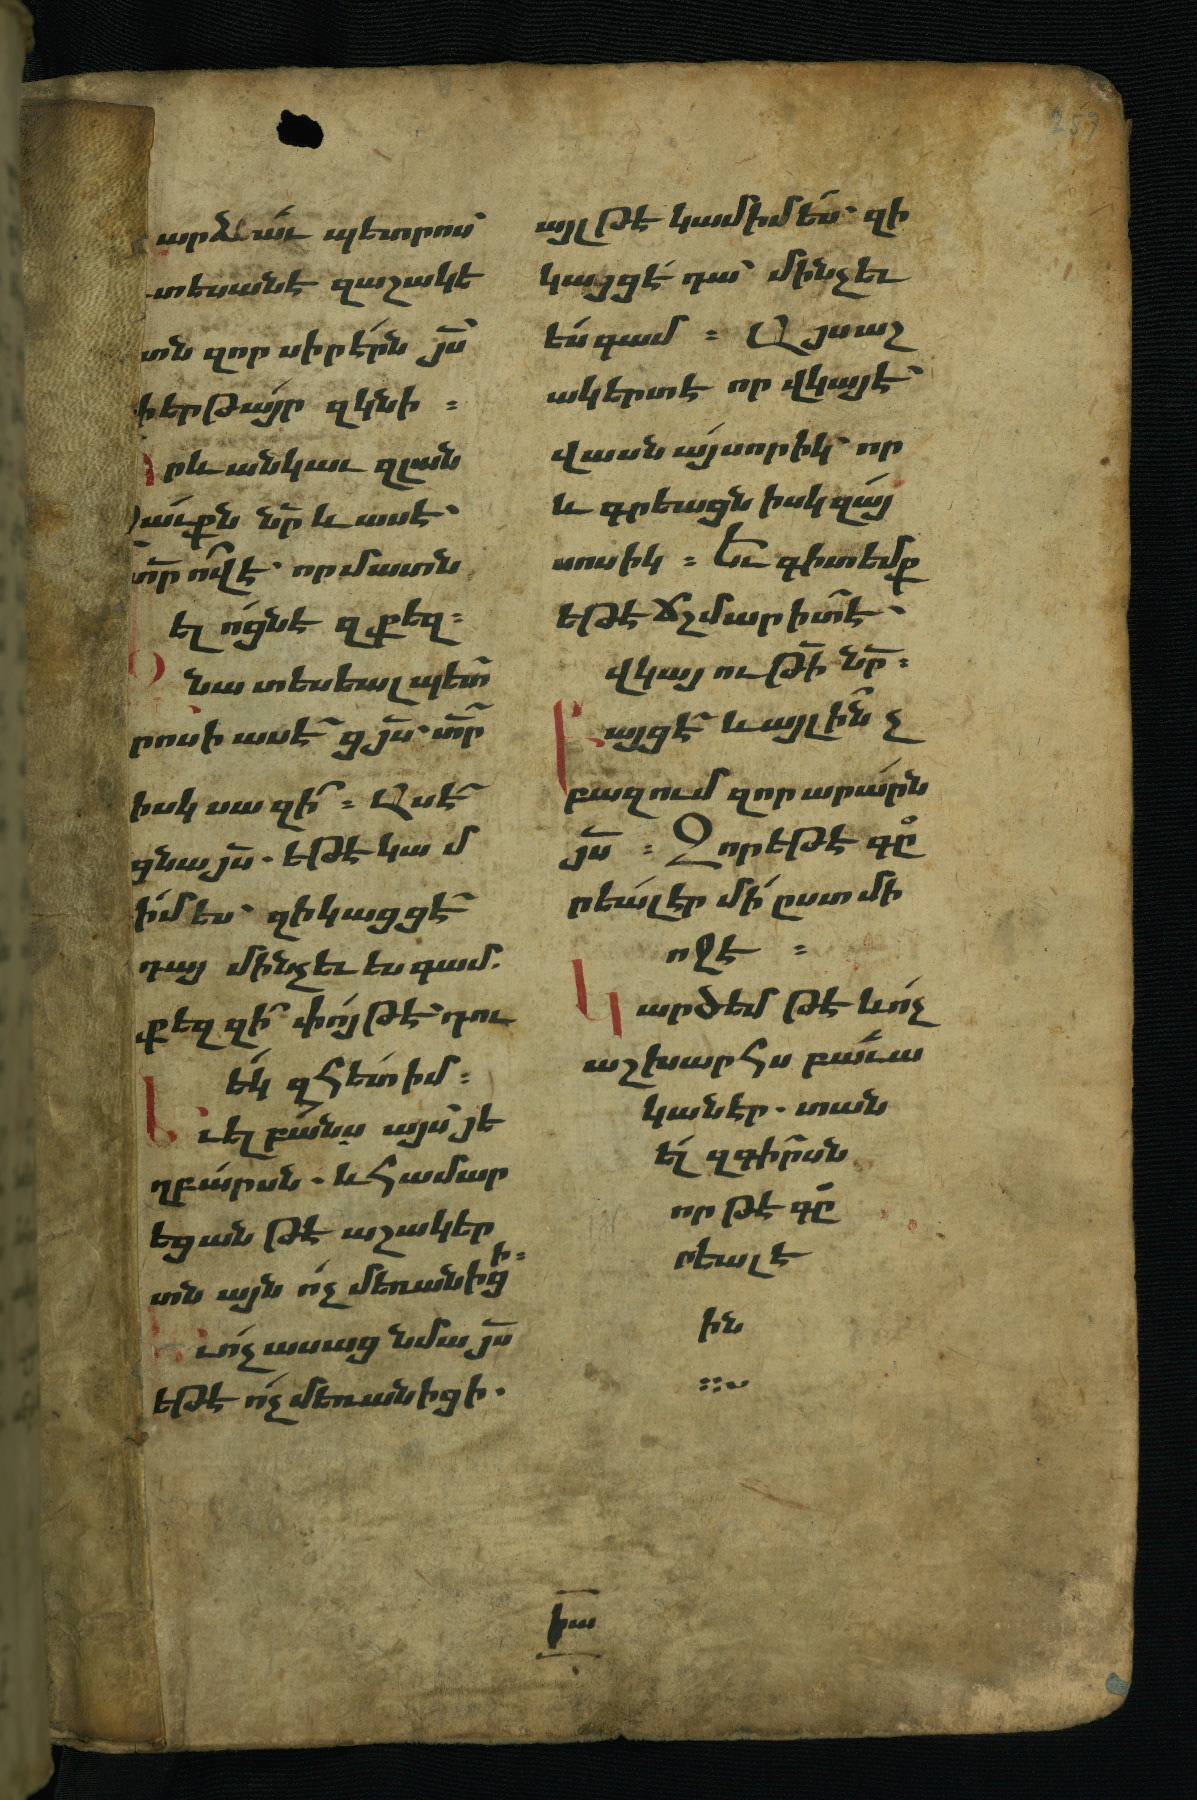 արձաւ պետրոս՝
տեսանէ զաշակե
տն զոր սիրէրն յս՝
երթայր զկնի :
րև անկաւ զլան
աւքն նր և ասէ՝
տր ո՞վ է՝ որ մատն
ել ոցնէ զքեզ :
նա տեսեալ պետ
րոսի ասէ ցյս՝ տր
իսկ սա զի՞ : Ասէ
ցնա յս. եթէ կամ
իմ ես՝ զի կացցէ
դայ մինչեւ ես գամ.
քեզ զի՞ փոյթ է՝ դու
եկ զհետ իմ :
Ել ել բանս այս յե
ղբարսն. և համար
եցան թէ աշակեր
տն այն ոչ մեռանիցի :
Եւ ոչ ասաց նմա յս
եթէ ոչ մեռանիցի.
այլ թէ կամիմ ես՝ զի
կացցէ դա՝ մինչեւ
ես գամ : Այս աշ
ակերտ է որ վկայէ՝
վասն այսորիկ՝ որ
և գրեացն իսկ զայ
սոսիկ : Եւ գիտեմք
եթէ ճշմարիտ է՝
վկայութի նր :
Կայցէ և այլ ինչ
բազում զոր արարն
յս : Զոր եթէ գը
րեալ էր մի ըստ մի
ոջէ :
Կարծեմ թէ և ոչ
աշխարհս բաւա
կան էր. տան
ել զգիրսն
որ թէ գը
րեալ է
ին
իա
259